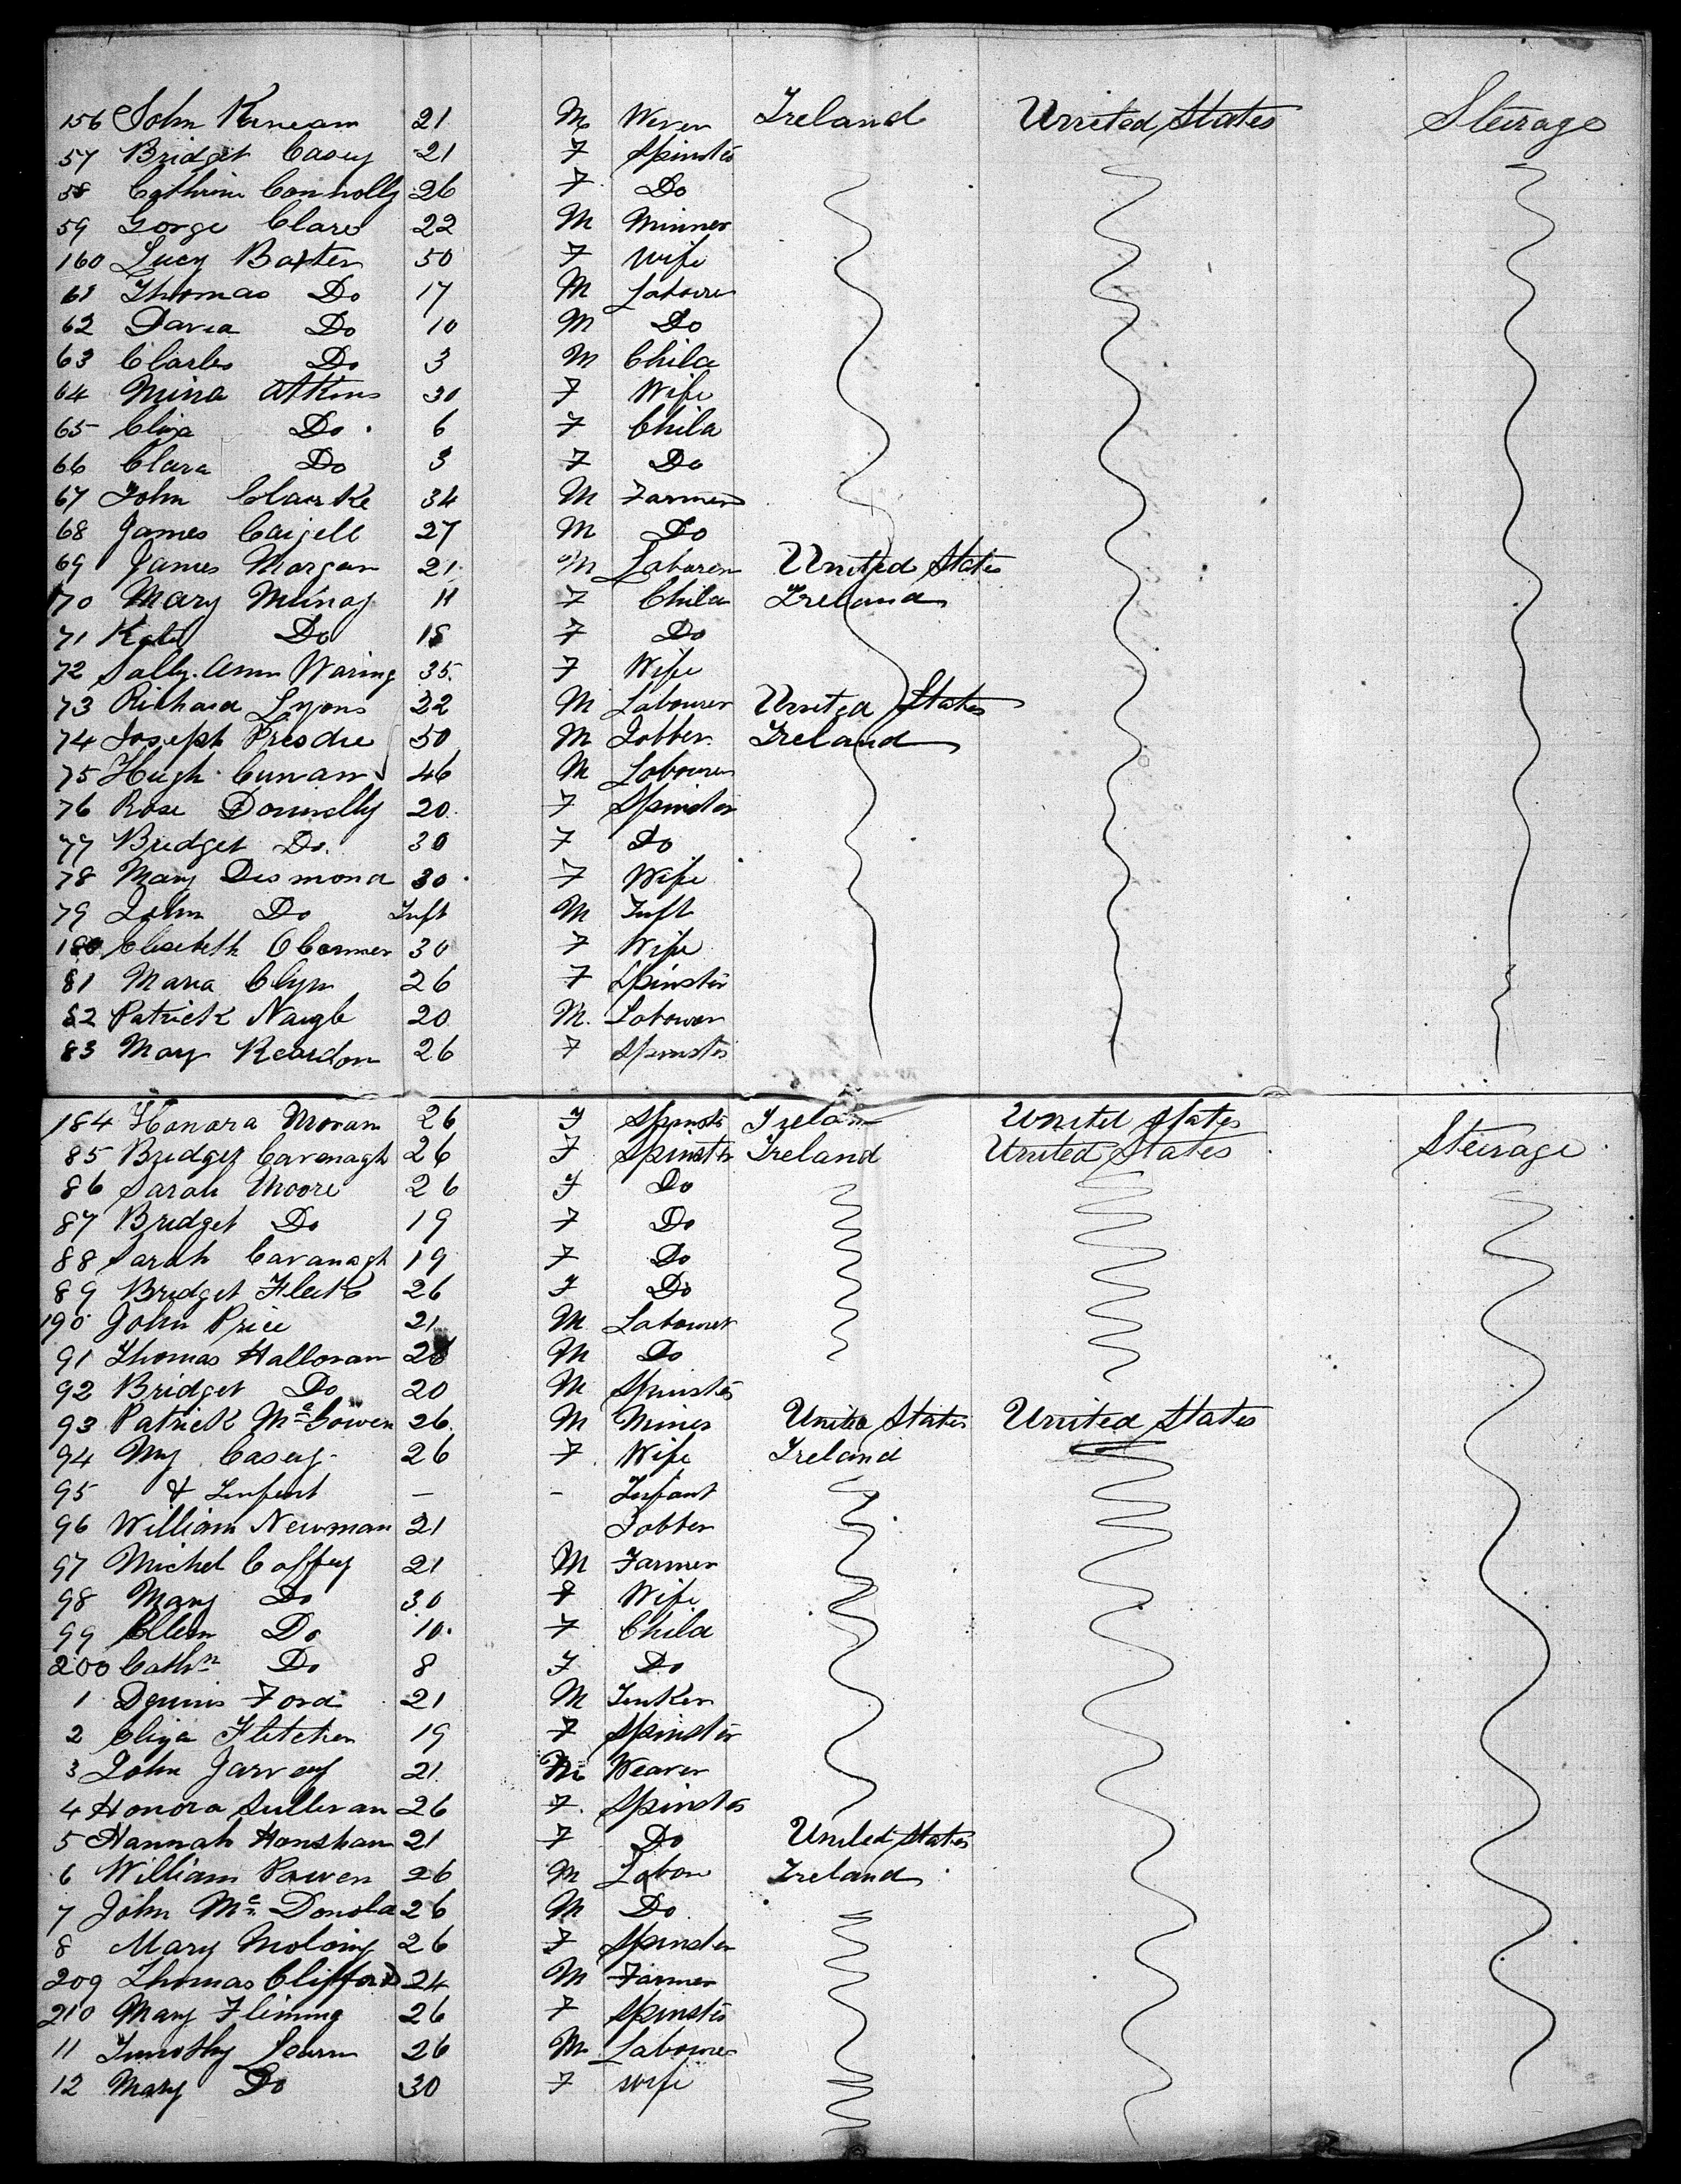 156 John Kerneam 21 M Wever Ireland United States Steirage
57 Bridget Casey 21 F Spinster
58 Cathrine Connolly 26 F Do
59 Gorge Clare 22 M Minner
160 Lucy Baxter 50 F Wife
61 Thomas Do 17 M Labourer
62 David Do 10 M Do
63 Charles Do 3 M Child
64 Mina Atkins 30 F Wife
65 Eliza Do 6 F Child
66 Clara Do 3 F Do
67 John Clarke 34 M Farmer
68 James 27 M Do
69 James Morgan 21 M Laborer United States
170 Mary 11 F Child Ireland
71 Kate Do 18 F Do
72 Sally Ann Waring 35 F Wife
73 Richard Lyons 22 M Labourer United States
74 Joseph 50 M Jobber Ireland
75 Hugh Cunan 46 M Labourer
76 Rose Donnelly 20 F Spinster
77 Bridget Do 30 F Do
78 Mary Desmond 30 F Wife
79 John Do Inft M Inft
180 Elisebeth OConner 30 F Wife
81 Maria Clyn 26 F Spinster
82 Patrick Naugle 20 M. Labower
83 Mary Reardon 26 F Spinster
184 Honora Moran 26 F Spinster Ireland United States
85 Bridget Cavenagh 26 F Spinster Ireland United States Steirage
86 Sarah Moore 26 F Do
87 Bridget Do 19 F Do
88 Sarah Cavanagh 19 F Do
89 Bridget Fleck 26 F Do
190 John Price 21 M Labourer
91 Thomas Halloran 26 M Do
92 Bridget Do 20 M Spinster
93 Patrick Mc Gowen 26 M Miner United States United States
94 My Casey 26 F Wife Ireland
95 & Infant — - Infant
96 William Newman 21 Jobber
97 Michel Coffey 21 M Farmer
98 Mary Do 30 F Wife
99 Ellen Do 10 F Child
200 Cathn Do 8 F Do
1 Dennis Ford 21 M Tinker
2 Eliza Fletcher 19 F Spinster
3 John Jarvey 21 M Weaver
4 Honora Sullivan 26 F Spinster
5 Hannah Honshan 21 F Do United States
6 William Power 26 M Labou Ireland
7 John Mc Donola 26 M Do
8 Mary Molony 26 F Spinster
209 Thomas Clifford 24 M Farmer
210 Mary Fleming 26 F Spinster
11 Timothy Learn 26 M Labourer
12 Mary Do 30 F wife